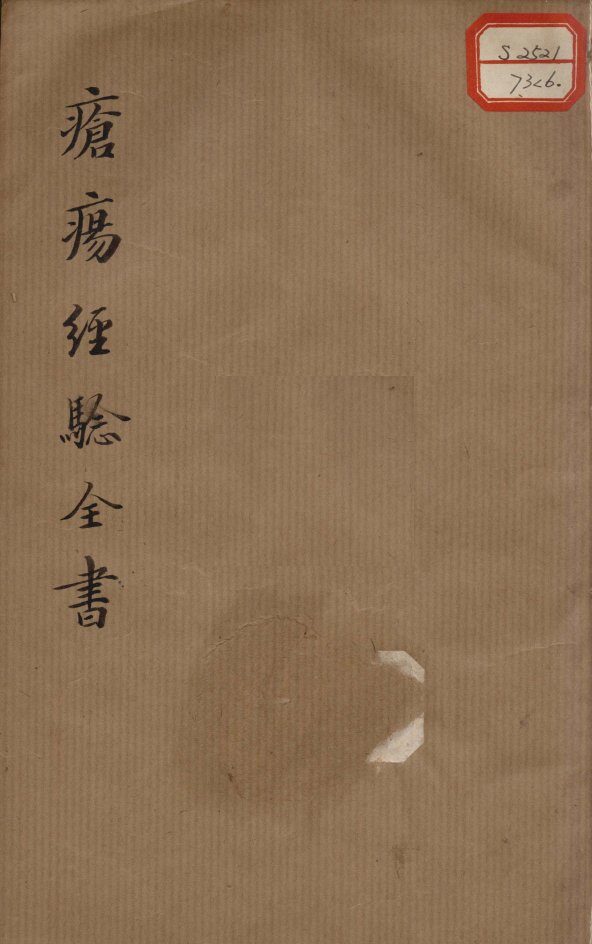 瘡瘍經騐全書
S2521
73<6.